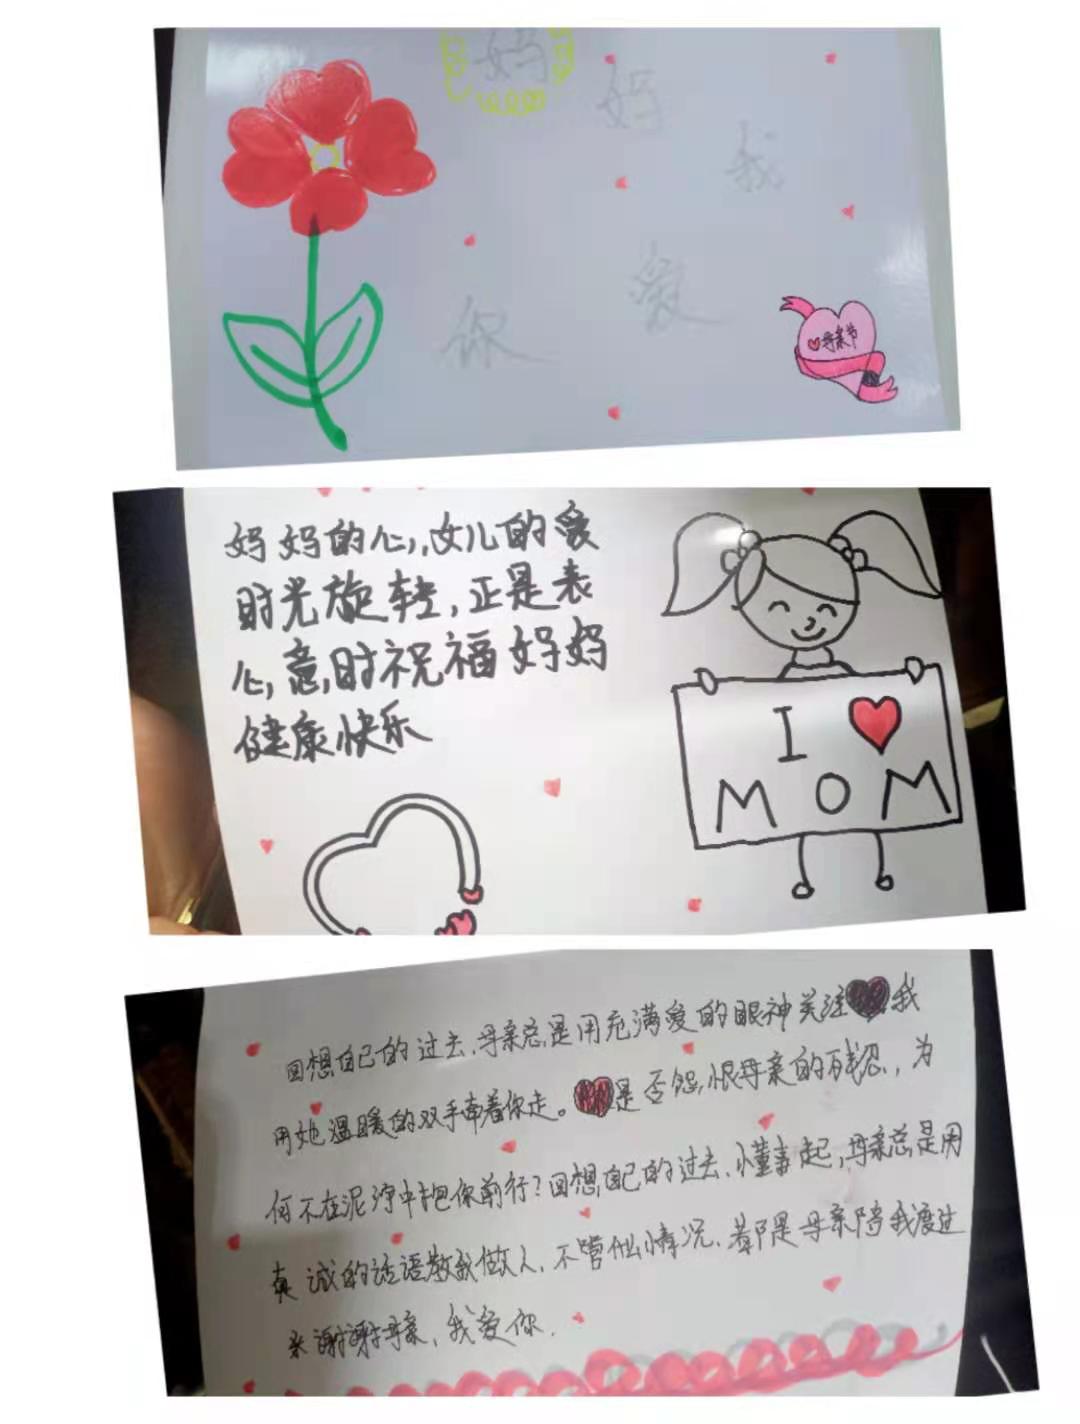 妈
妈
我
爱
你
母亲节
妈妈的心,女儿的爱
时光旋转,正是表
心意,时祝福妈妈
健康快乐
I
MOM
回想自己的过去,母亲总是用充满爱的眼神关注我
用她温暖的双手牵着你走。是否怨恨母亲的残忍,为
何不在泥泞中抱你前行?回想自己的过去,懂事起,母亲总是用
真诚的话语教我做人,不管什么情况,都是母亲陪我度过
来谢谢母亲,我爱你.